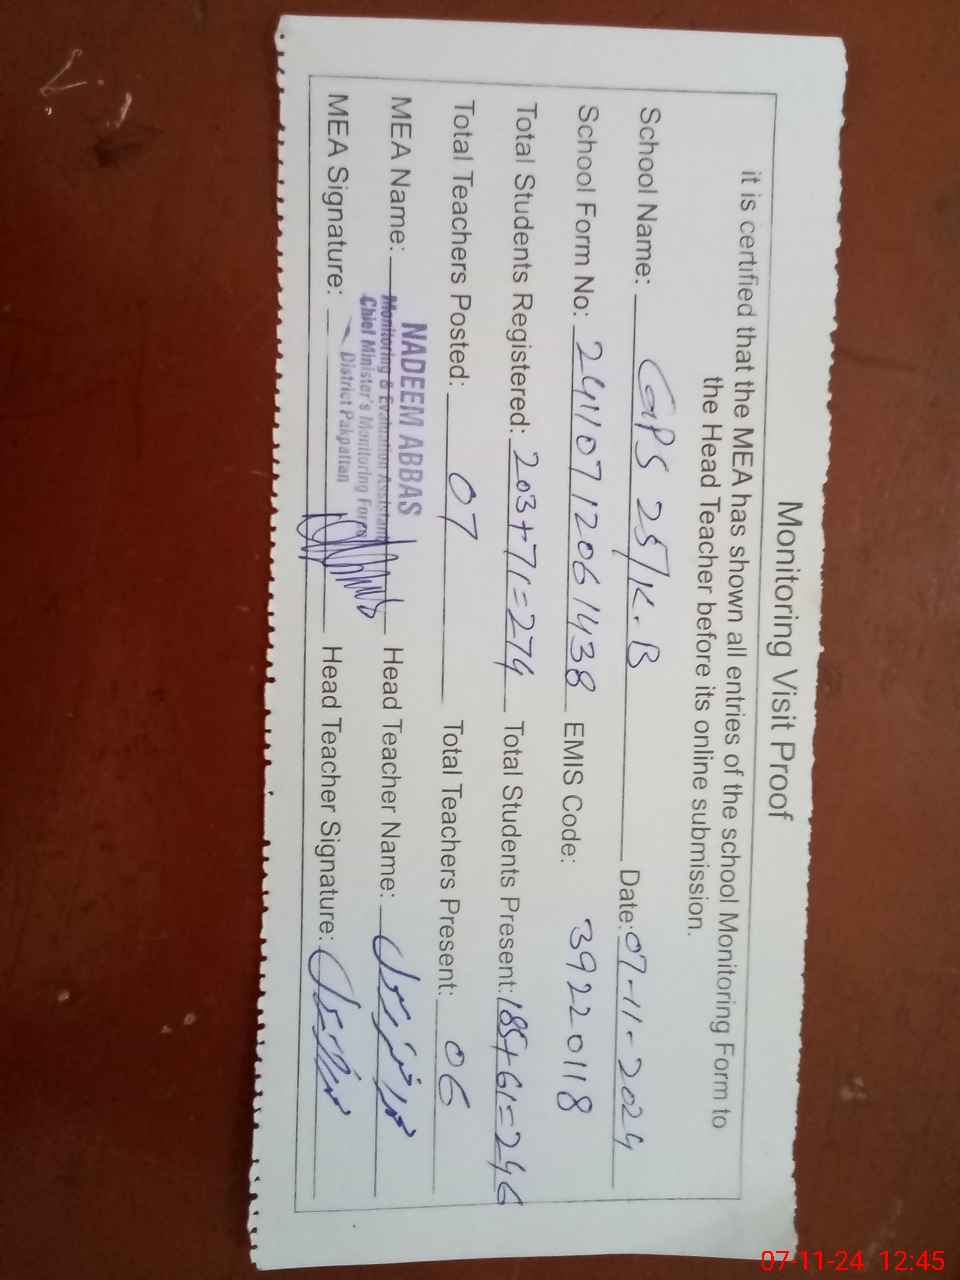 Monitoring Visit Proof
it is certified that the MEA has shown all entries of the school Monitoring Form to
the Head Teacher before its online submission.
School Name: GPS 25/K.B Date: 07-11-2024
School Form No: 2411071206 1438 EMIS Code: 39220118
Total Students Registered: 203+71=274 Total Students Present: 185+61=246
Total Teachers Posted: 07 Total Teachers Present: 06
MEA Name: NADEEM ABBAS Head Teacher Name:
Monitoring & Evaluation Assistant
Chief Minister's Monitoring Force
District Pakpattan
MEA Signature: Head Teacher Signature:
07-11-24 12:45